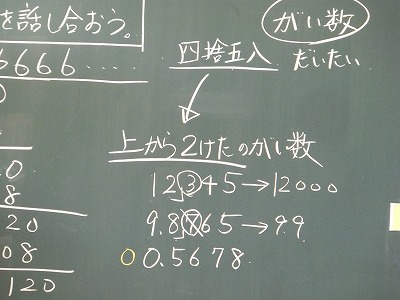 を話し合おう。
6666.....
0
.0
8
20
08
120
がい数
四捨五入 だいたい
上から2けたのがい数
12345→12000
9.8765→9.9
0 0.5678